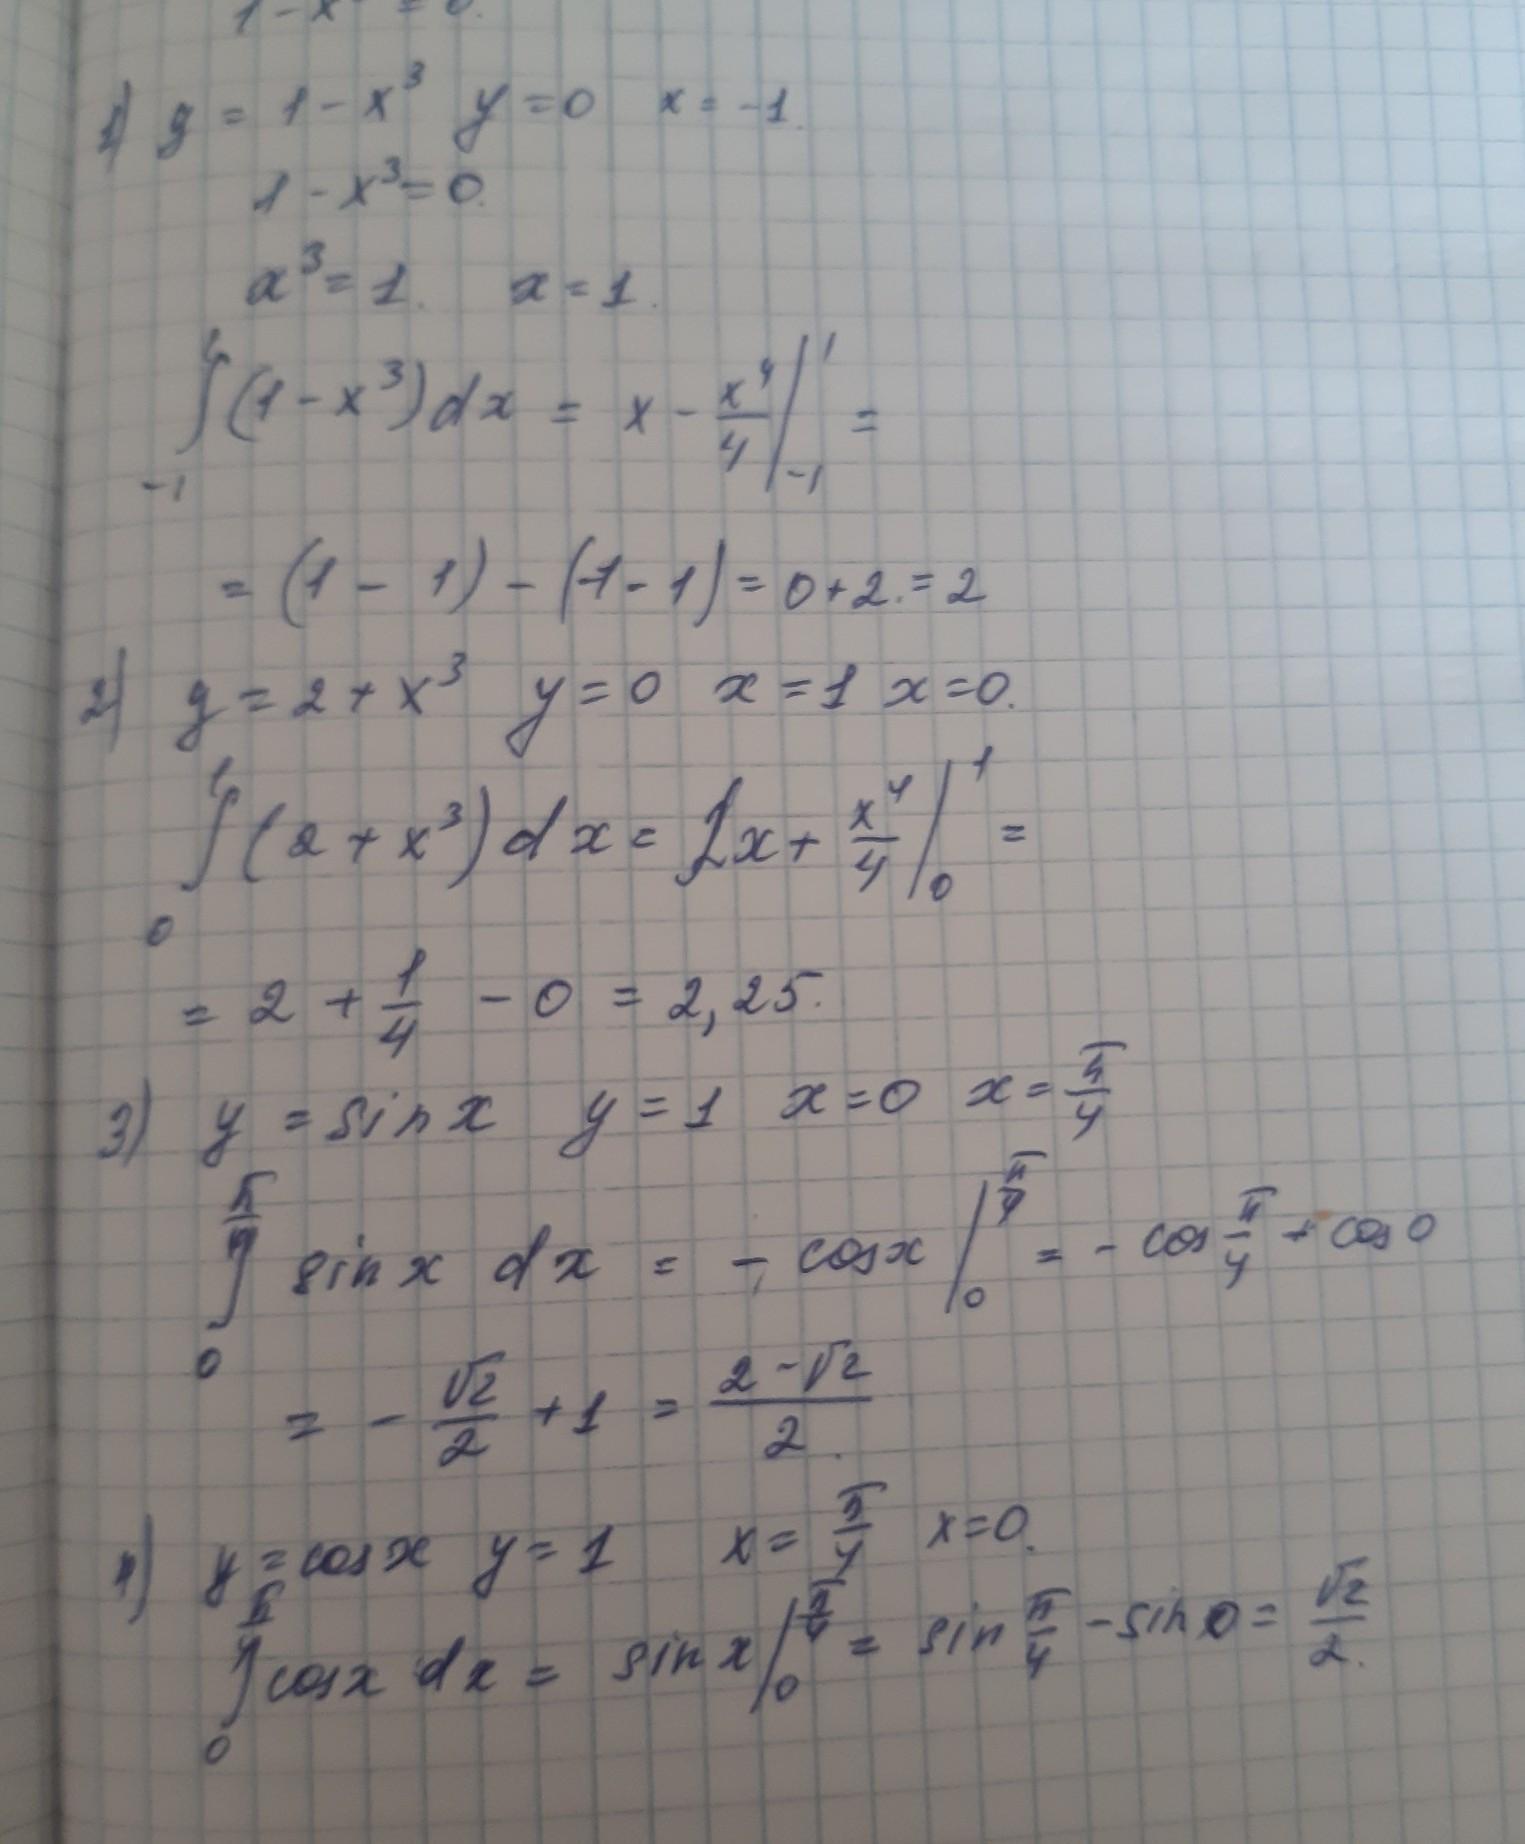 1 - x = 0.
1) y = 1 - x³ y = 0 x = -1.
1 - x³ = 0.
x³ = 1. x = 1.
∫₋₁¹ (1 - x³) dx = x - x⁴/4 |₋₁¹ =
= (1 - 1) - (-1 - 1) = 0 + 2. = 2
2) y = 2 + x³ y = 0 x = 1 x = 0.
∫₀¹ (2 + x³) dx = 2x + x⁴/4 |₀¹ =
= 2 + 1/4 - 0 = 2,25.
3) y = sin x y = 1 x = 0 x = π/4
∫₀^(π/4) sin x dx = - cos x |₀^(π/4) = - cos π/4 + cos 0
= - √2/2 + 1 = (2 - √2)/2.
4) y = cos x y = 1 x = π/4 x = 0.
∫₀^(π/4) cos x dx = sin x |₀^(π/4) = sin π/4 - sin 0 = √2/2.